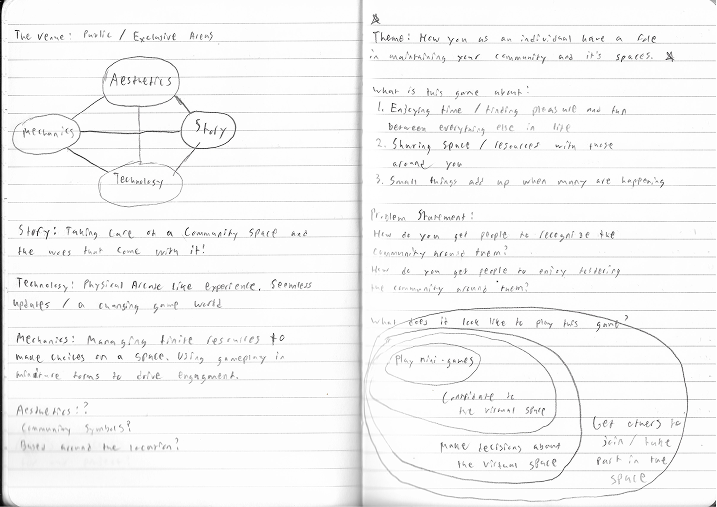 The Venue: Public / Exclusive Areas
Aesthetics
Mechanics
Story
Technology
Story: Taking care of a Community space and
the woes that come with it!
Technology: Physical Arcade like Experience. Seamless
updates / a changing game world
Mechanics: Managing finite resources to
make choices on a space. Using gameplay in
forms to drive engagement.
Aesthetics:?
Community Symbols?
Based around the location?
Theme: How you as an individual have a role
in maintaining your community and it's spaces.
What is this game about:
1. Enjoying time / finding pleasure and fun
between everything else in life
2. Sharing space / resources with those
around you
3. Small things add up when many are happening
Problem Statement:
How do you get people to recognize the
community around them?
How do you get people to enjoy fostering
the community around them?
What does it look like to play this game?
Play mini-games
Contribute to
the virtual space
Make decisions about
the virtual space
Get others to
join / take
part in the
space